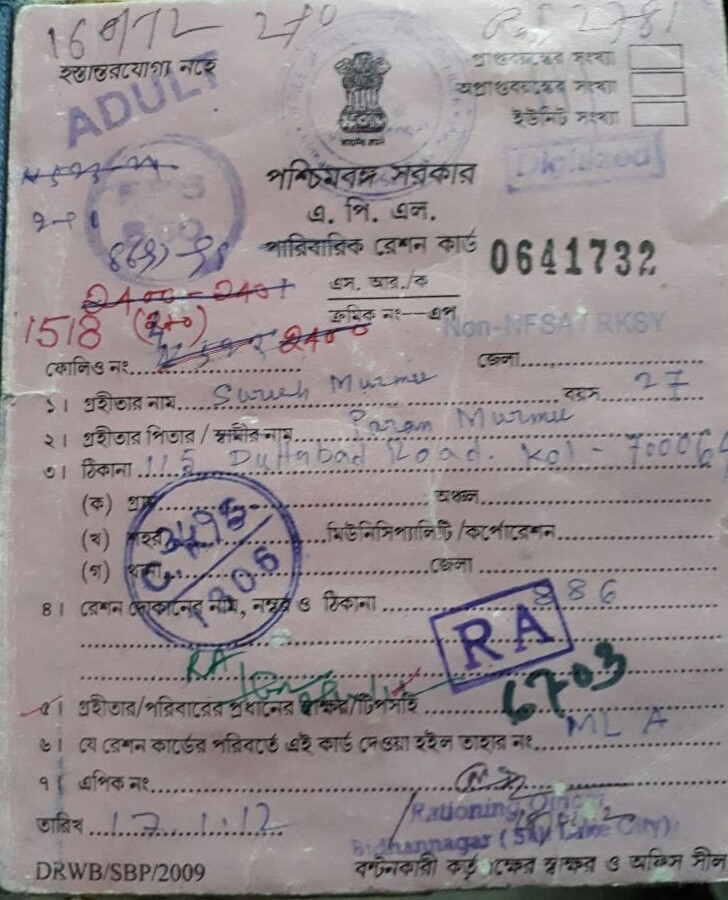 16
হস্তান্তরযোগ্য নহে
ADULT
প্রাপ্তবয়স্কের সংখ্যা
অপ্রাপ্তবয়স্কের সংখ্যা
ইউনিট সংখ্যা
Digitized
পশ্চিমবঙ্গ সরকার
এ. পি. এল.
পারিবারিক রেশন কার্ড 0641732
2400-2401
এস. আর./ক
ক্রমিক নং—এপ
1518 (240) 2400
Non-NFSA / RKSY
ফোলিও নং............ জেলা............
১। গ্রহীতার নাম.... Suresh Murmu বয়স.... 27
২। গ্রহীতার পিতার / স্বামীর নাম.... Paran Murmu
৩। ঠিকানা 115 Duttabad Road. Kol - 700064
(ক) গ্রাম............ অঞ্চল............
(খ) শহর............ মিউনিসিপ্যালিটি /কর্পোরেশন............
(গ) থানা............ জেলা............
1306
৪। রেশন দোকানের নাম, নম্বর ও ঠিকানা............ 886
RA
RA
6703
৫। গ্রহীতার/পরিবারের প্রধানের স্বাক্ষর/টিপসই............
৬। যে রেশন কার্ডের পরিবর্তে এই কার্ড দেওয়া হইল তাহার নং.... MLA
৭। এপিক নং............
Rationing Officer
তারিখ.... 17.1.12
Bidhannagar (Salt Lake City)
DRWB/SBP/2009
বণ্টনকারী কর্তৃপক্ষের স্বাক্ষর ও অফিস সীল